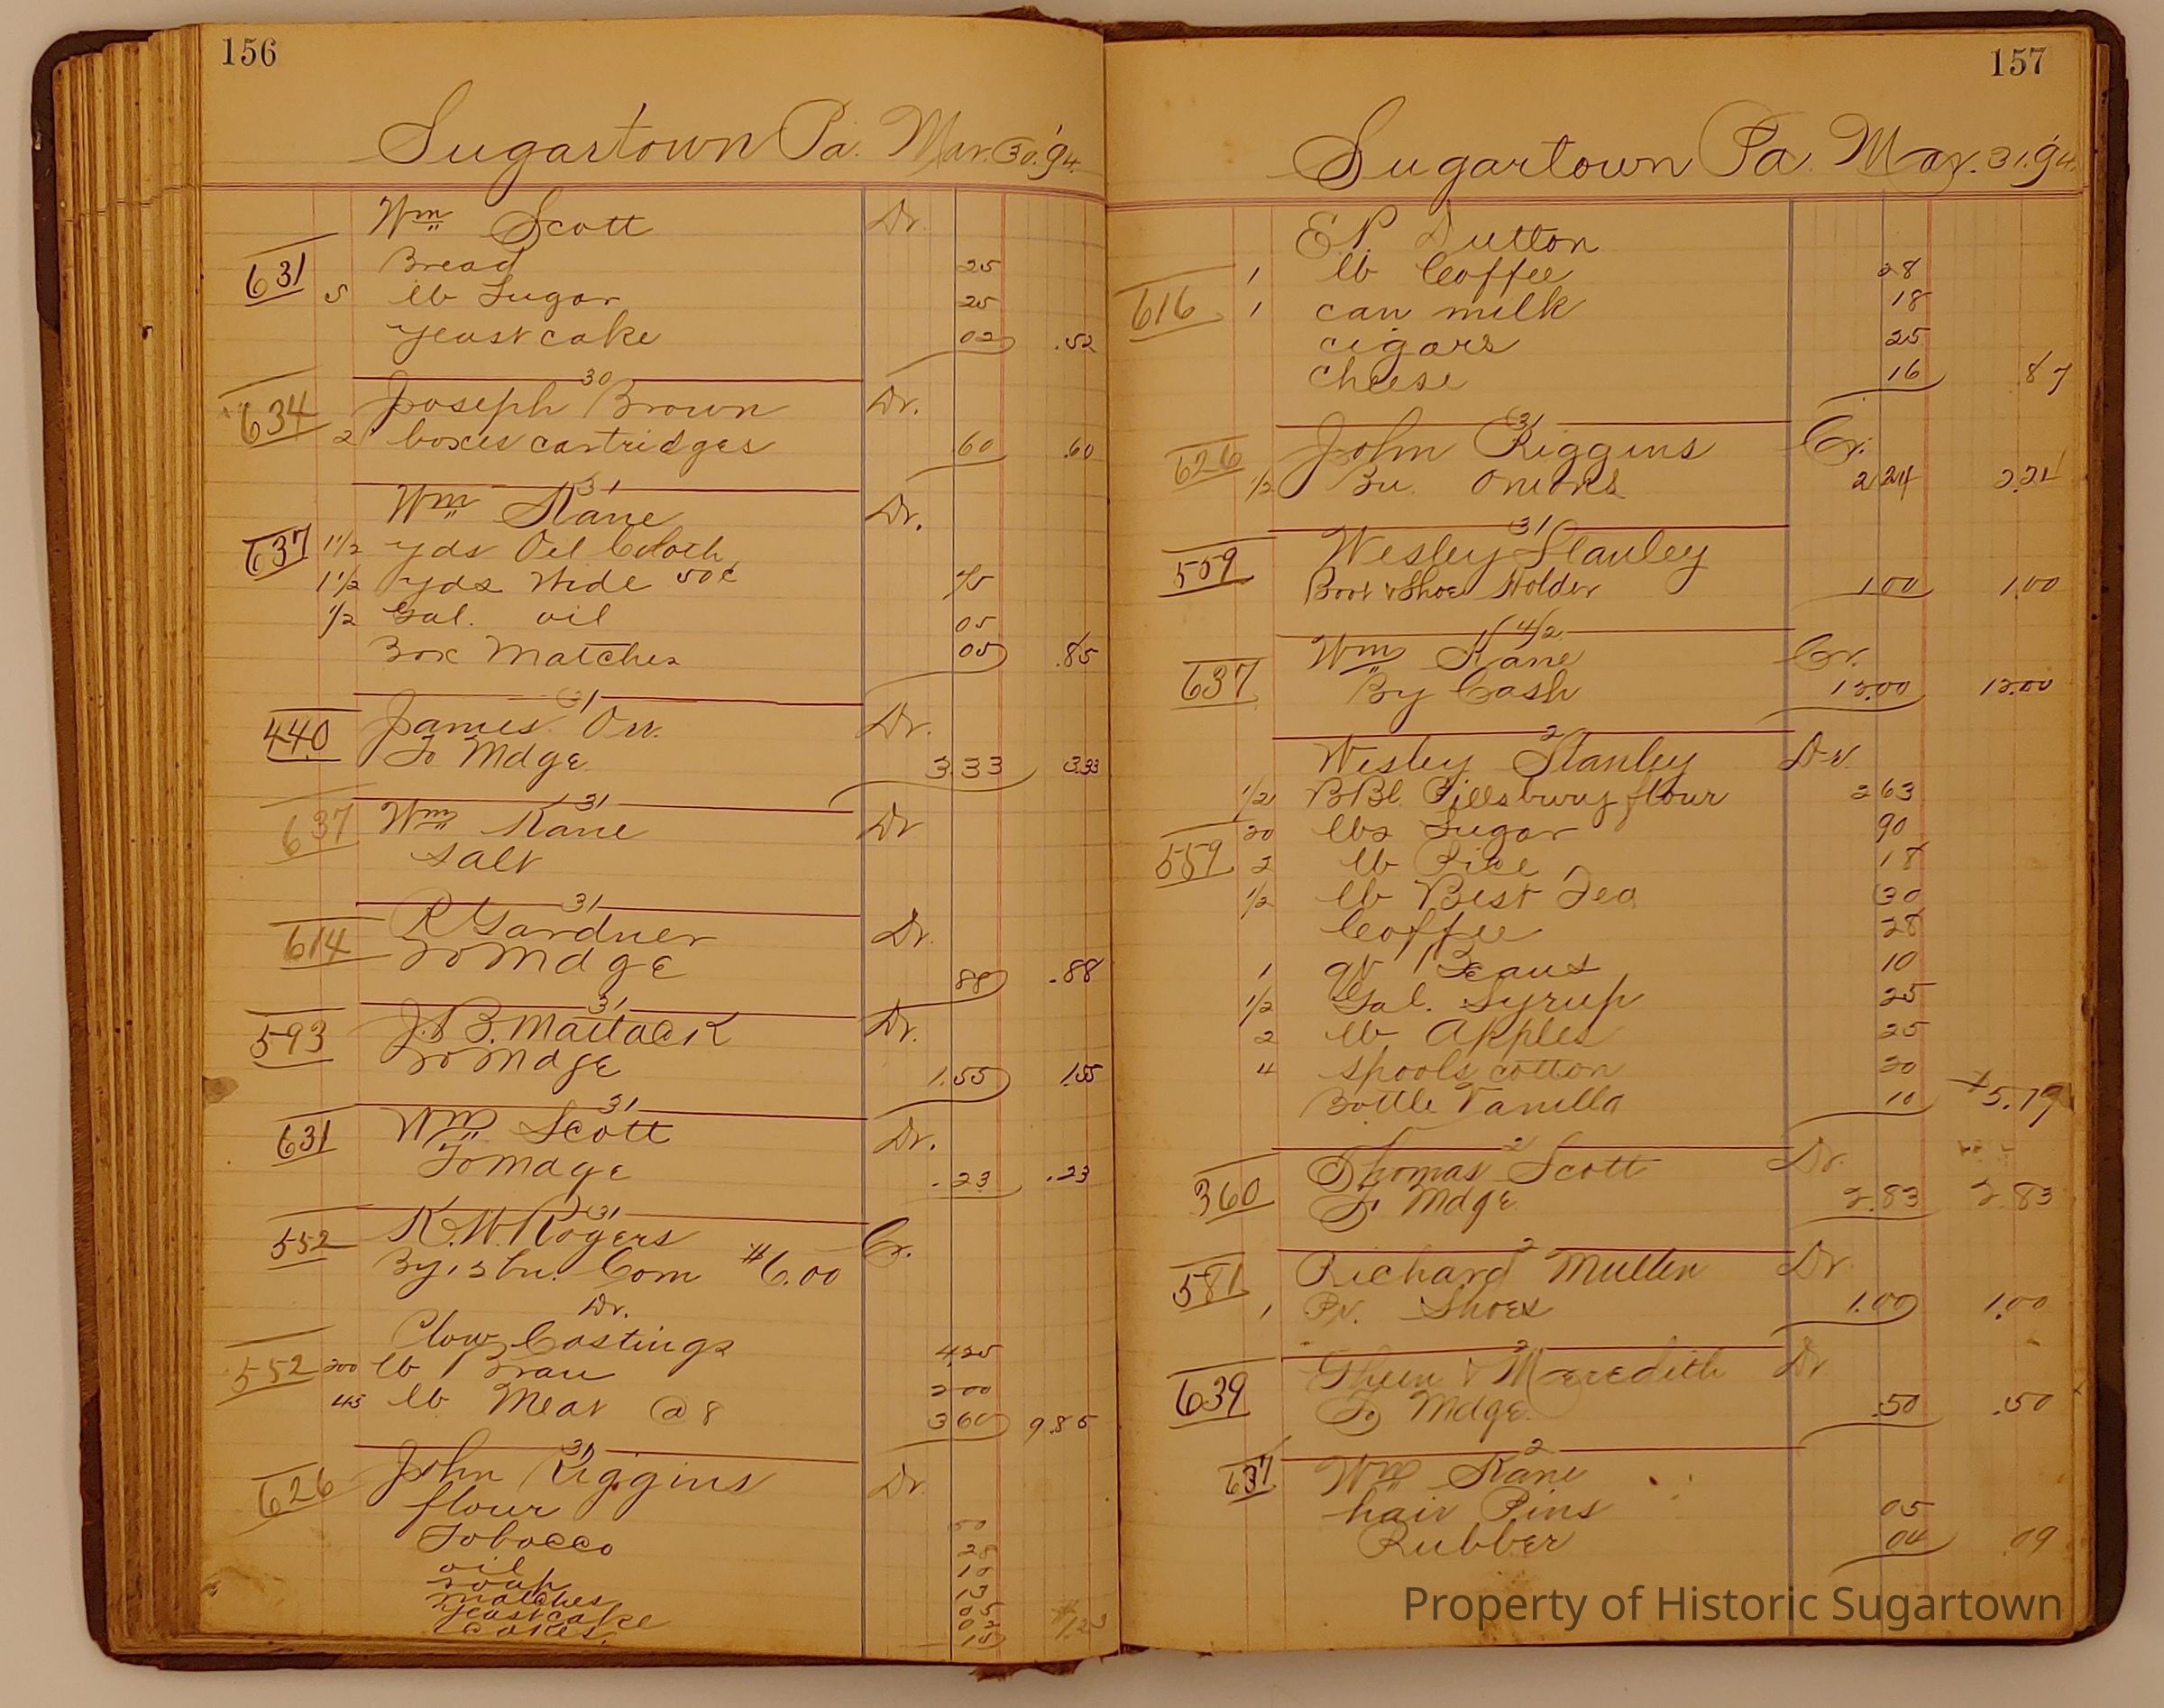 156
Sugartown Pa. Mar. 30. '94.
Wm Scott Dr.
631 Bread 25
5 lb Sugar 25
yeast cake 02 .52
30
634 Joseph Brown Dr.
2 boxes cartridges 60 .60
31
Wm Kane Dr.
637 1 1/2 yds Oil Cloth
1 1/2 yds Wide 50¢ 75
1/2 Gal. oil 05
Box Matches 05 .85
31
440 James Orr. Dr.
To Mdge 3 33 3.33
31
637 Wm Kane Dr
Salt
31
614 R Gardner Dr.
To Mdge 88 .88
31
593 J. B. Matlack Dr.
To Mdge 1.55 1.55
31
631 Wm Scott Dr.
To Mdge .23 .23
31
552 K. W. Rogers Cr.
By 15 bu. Corn $6.00
Dr.
Plow Castings 4.25
552 200 lb Bran 2 00
45 lb Meat @ 8 3 60 9.85
31
626 John Riggins Dr.
flour 50
Tobacco 28
oil 10
soap 13
matches 05
yeast cake 02
cakes. 15 $1.23
157
Sugartown Pa. Mar. 31. '94.
E. P. Dutton
1 lb Coffee 28
616 1 can milk 18
cigars 25
cheese 16 87
31
626 John Riggins Cr.
1/2 Bu. Onions 2 24 2.24
31
559 Wesley Stanley
Boot & Shoe Holder 1 00 1.00
4/2
637 Wm Kane Cr.
By Cash 12.00 12.00
2
Wesley Stanley Dr.
1/2 BBl. Pillsbury flour 2 63
20 lbs Sugar 90
559 2 lb Rice 18
1/2 lb Best Tea 30
Coffee 28
1 qt Beans 10
1/2 Gal. Syrup 25
2 lb Apples 25
4 spools cotton 20
Bottle Vanilla 10 5.19
2
360 Thomas Scott Dr.
To Mdge 2.83 2 83
2
581 Richard Mullen Dr
1 Pr. Shoes 1.00 1.00
2
639 & Meredith Dr
To Mdge. .50 .50
2
637 Wm Kane
hair Pins 05
Rubber 04 09
Property of Historic Sugartown